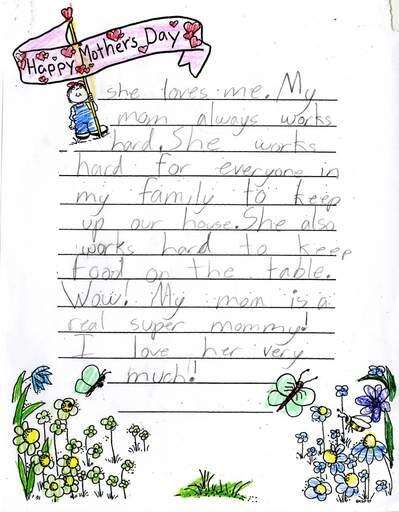 Happy Mother's Day
she loves me. My
mom always works
hard. She works
hard for everyone in
my family to keep
up our house. She also
works hard to keep
food on the table.
Wow! My mom is a
real super mommy!
I love her very
much!